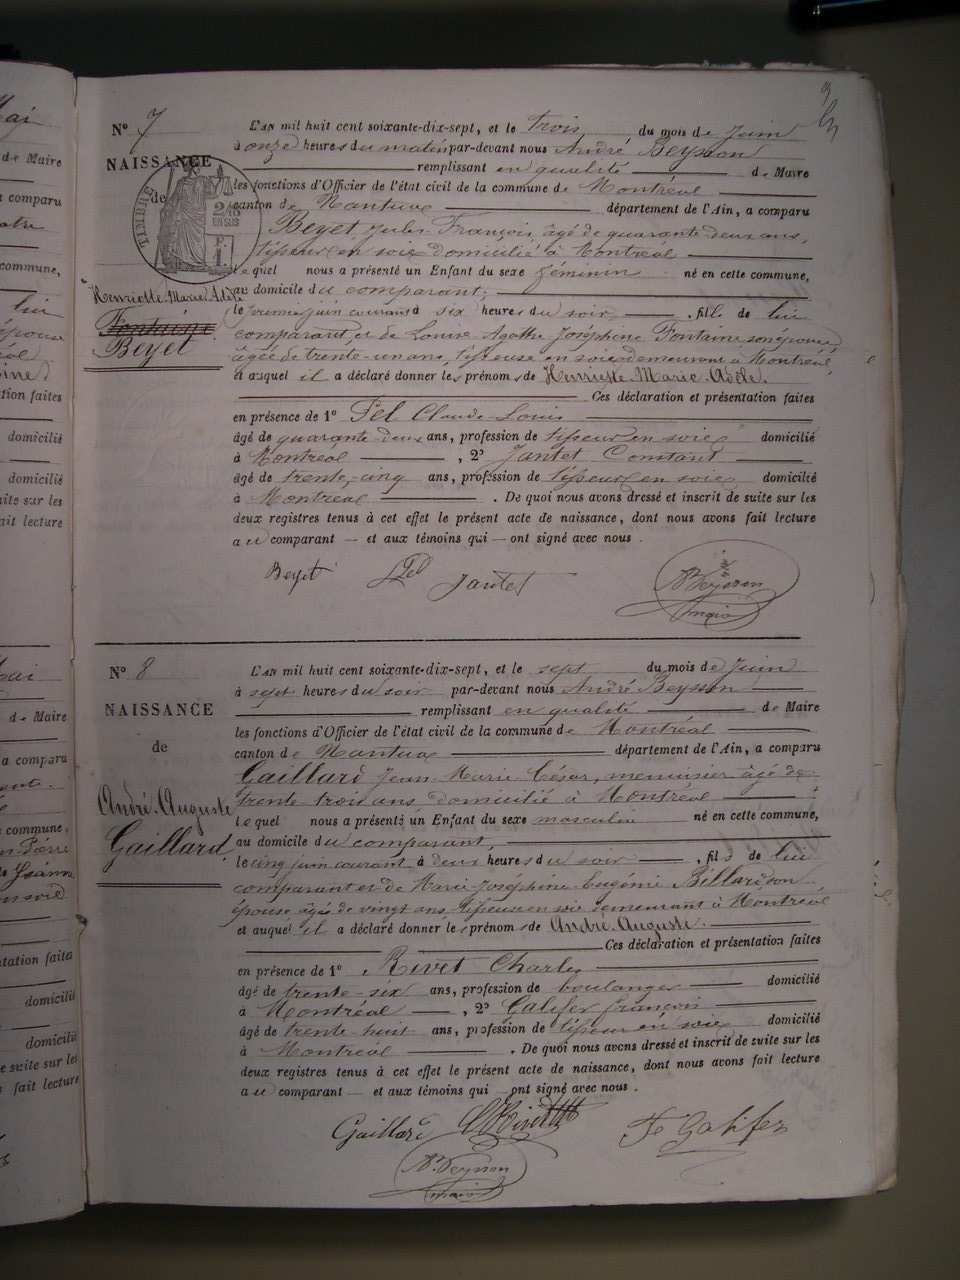 N° 7
NAISSANCE
de
TIMBRE
2/10 EN SUS
F. 1.
Henriette-Marie-Adèle
Fontaine
Beyet
L'AN mil huit cent soixante-dix-sept, et le trois du mois de Juin
à onze heures du matin par-devant nous André Beysson
remplissant en qualité de Maire
les fonctions d'Officier de l'état civil de la commune de Montréal
canton de Nantua département de l'Ain, a comparu
Beyet François, âgé de quarante deux ans,
tisseur en soie domicilié à Montréal
lequel nous a présenté un Enfant du sexe féminin né en cette commune,
au domicile du comparant,
le premier juin courant à six heures du soir, fille de lui
comparant et de Louise Agathe Joséphine Fontaine son épouse,
âgée de trente-un ans, tisseuse en soie demeurant à Montréal,
et auquel il a déclaré donner les prénoms de Henriette-Marie-Adèle.
Ces déclaration et présentation faites
en présence de 1° Pel Claude-Louis
âgé de quarante-deux ans, profession de tisseur en soie domicilié
à Montréal, 2° Jantet Constant
âgé de trente-cinq ans, profession de tisseur en soie domicilié
à Montréal. De quoi nous avons dressé et inscrit de suite sur les
deux registres tenus à cet effet le présent acte de naissance, dont nous avons fait lecture
au comparant — et aux témoins qui — ont signé avec nous.
Beyet Pel Jantet A. Beysson
maire
N° 8
NAISSANCE
de
André-Auguste
Gaillard
L'AN mil huit cent soixante-dix-sept, et le sept du mois de Juin
à sept heures du soir par-devant nous André Beysson
remplissant en qualité de Maire
les fonctions d'Officier de l'état civil de la commune de Montréal
canton de Nantua département de l'Ain, a comparu
Gaillard Jean-Marie-César, menuisier âgé de
trente-trois ans domicilié à Montréal
lequel nous a présenté un Enfant du sexe masculin né en cette commune,
au domicile du comparant,
le cinq juin courant à deux heures du soir, fils de lui
comparant et de Marie-Joséphine-Eugénie Billard son
épouse âgée de vingt ans, tisseuse en soie demeurant à Montréal
et auquel il a déclaré donner les prénoms de André-Auguste.
Ces déclaration et présentation faites
en présence de 1° Rivet Charles
âgé de trente-six ans, profession de boulanger domicilié
à Montréal, 2° Galifer françois
âgé de trente-huit ans, profession de tisseur en soie domicilié
à Montréal. De quoi nous avons dressé et inscrit de suite sur les
deux registres tenus à cet effet le présent acte de naissance, dont nous avons fait lecture
au comparant — et aux témoins qui — ont signé avec nous.
Gaillard C. Rivet F. Galifer
A. Beysson
maire